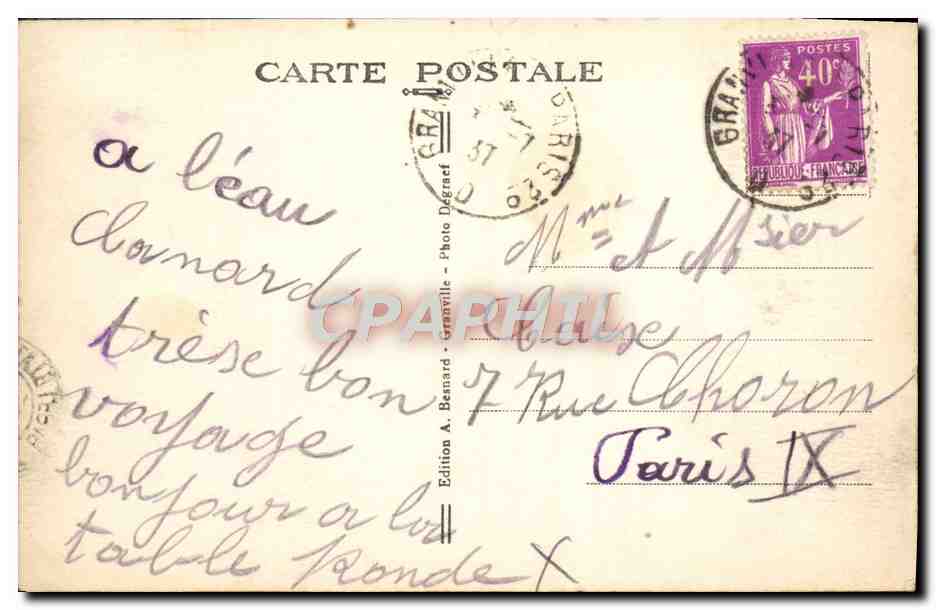 CARTE POSTALE
POSTES
40c
REPUBLIQUE - FRANCAISE
GRANV
A PARIS
37
a l'éau
Canard
trèse bon
voyage
bonjour a la
table Ronde X
Edition A. Besnard - Granville - Photo Degraef
Mme et Msier
7 Rue Choron
Paris IX
CPAPHIL